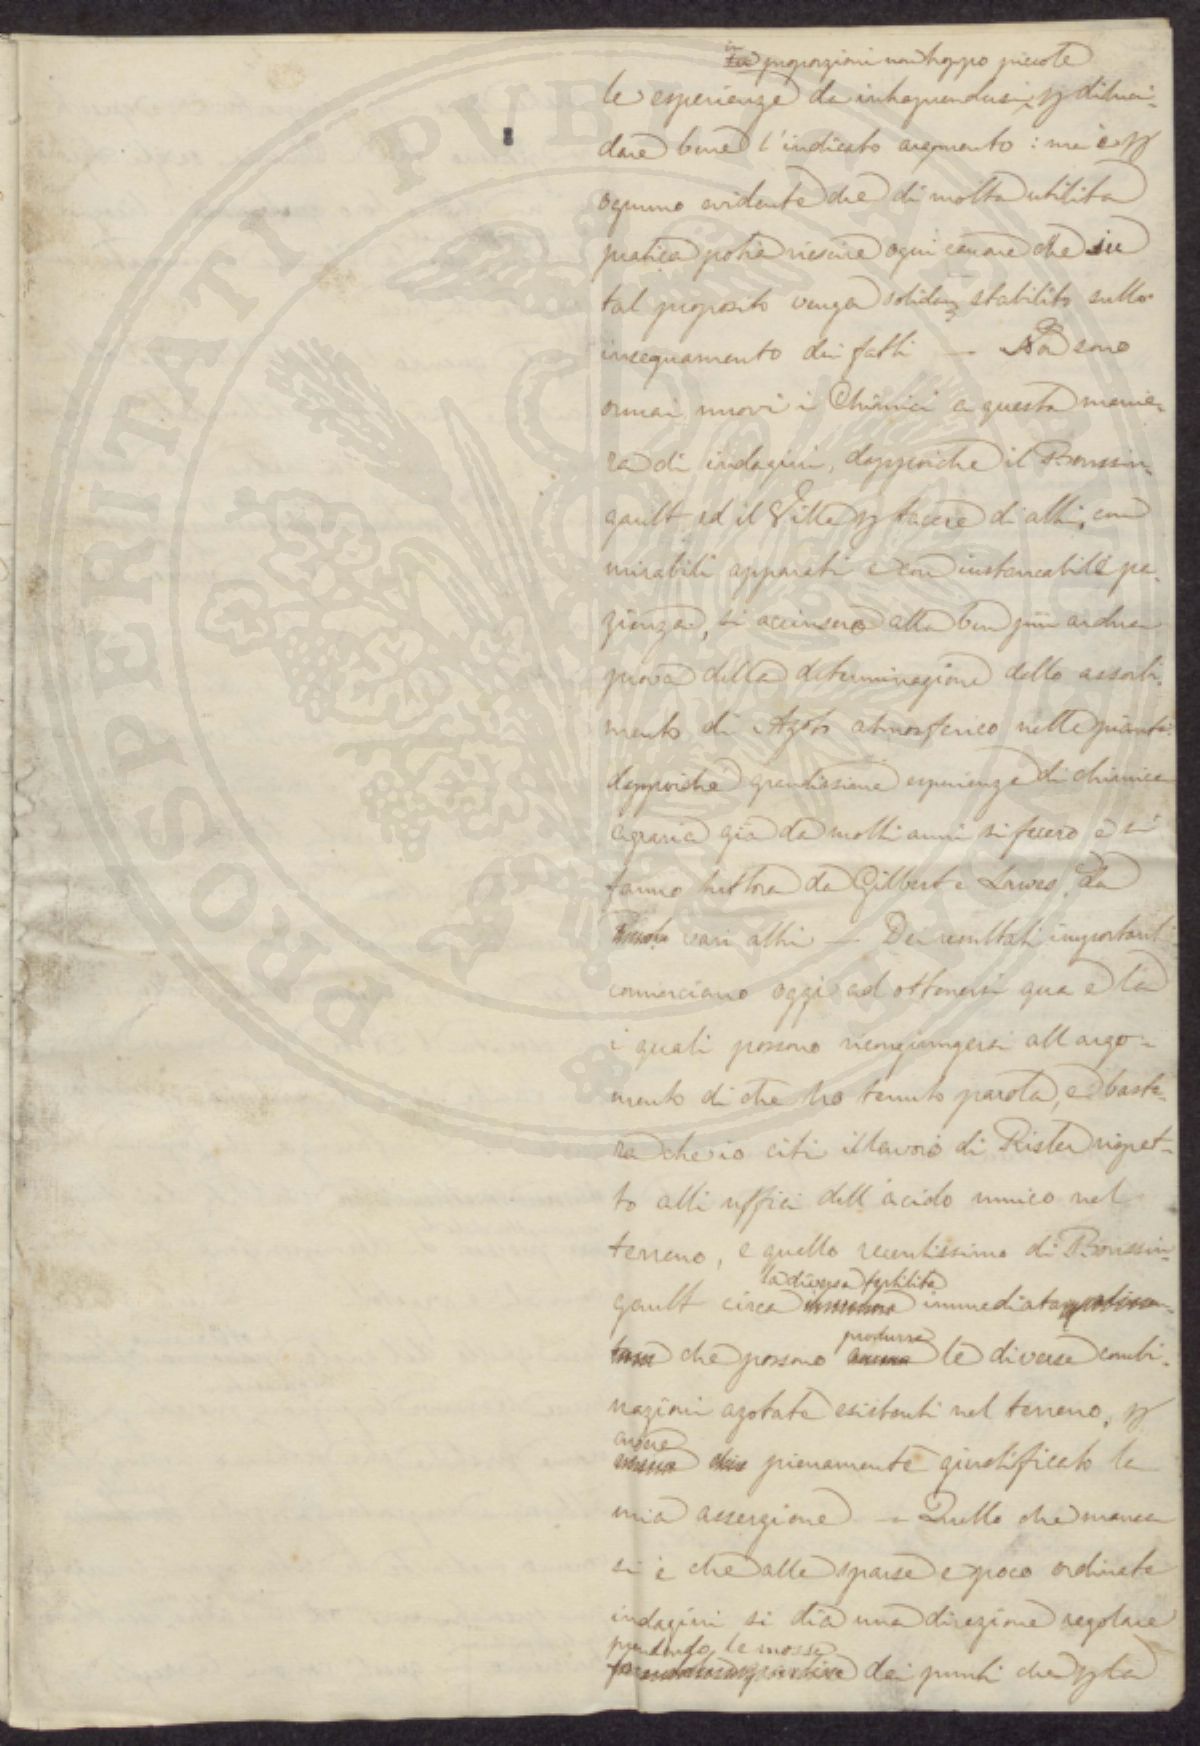 in proporzioni non troppo piccole
le esperienze da intraprendersi, p diluci-
dare bene l'indicato argomento: ma è p
ognuno evidente che di molta utilità
pratica potrà riescire ogni canone che su
tal proposito venga solidam stabilito sullo
insegnamento dei fatti — Nò sono
ormai nuovi i Chimici a questa manie-
ra di indagini, dappoiche il Boussin-
gault ed il Ville p tacere di altri, con
mirabili apparati e con instancabile pa-
zienza, si accinsero alla ben più ardua
prova della determinazione dello assorbi-
mento di Azoto atmosferico nelle piante.
dappoiche grandissime esperienze di chimica
agraria già da molti anni si fecero e si
fanno tuttora da Gilbert e Lawes, da
vari altri — Dei resultati importanti
cominciano oggi ad ottenersi qua e là
i quali possono ricongiungersi all argo-
mento di che ho tenuto parola, e baste-
rà che io citi il lavoro di Risler rispet-
to alli uffici dell'acido umico nel
terreno, e quello recentissimo di Boussin-
gault circa la diversa fertilità immediata
che possono produrre le diverse combi-
nazioni azotate esistenti nel terreno, p
avere pienamente giustificato la
mia asserzione — Quello che manca
si è che alle sparse e poco ordinate
indagini si dia una direzione regolare
prendendo le mosse dei punti che p la